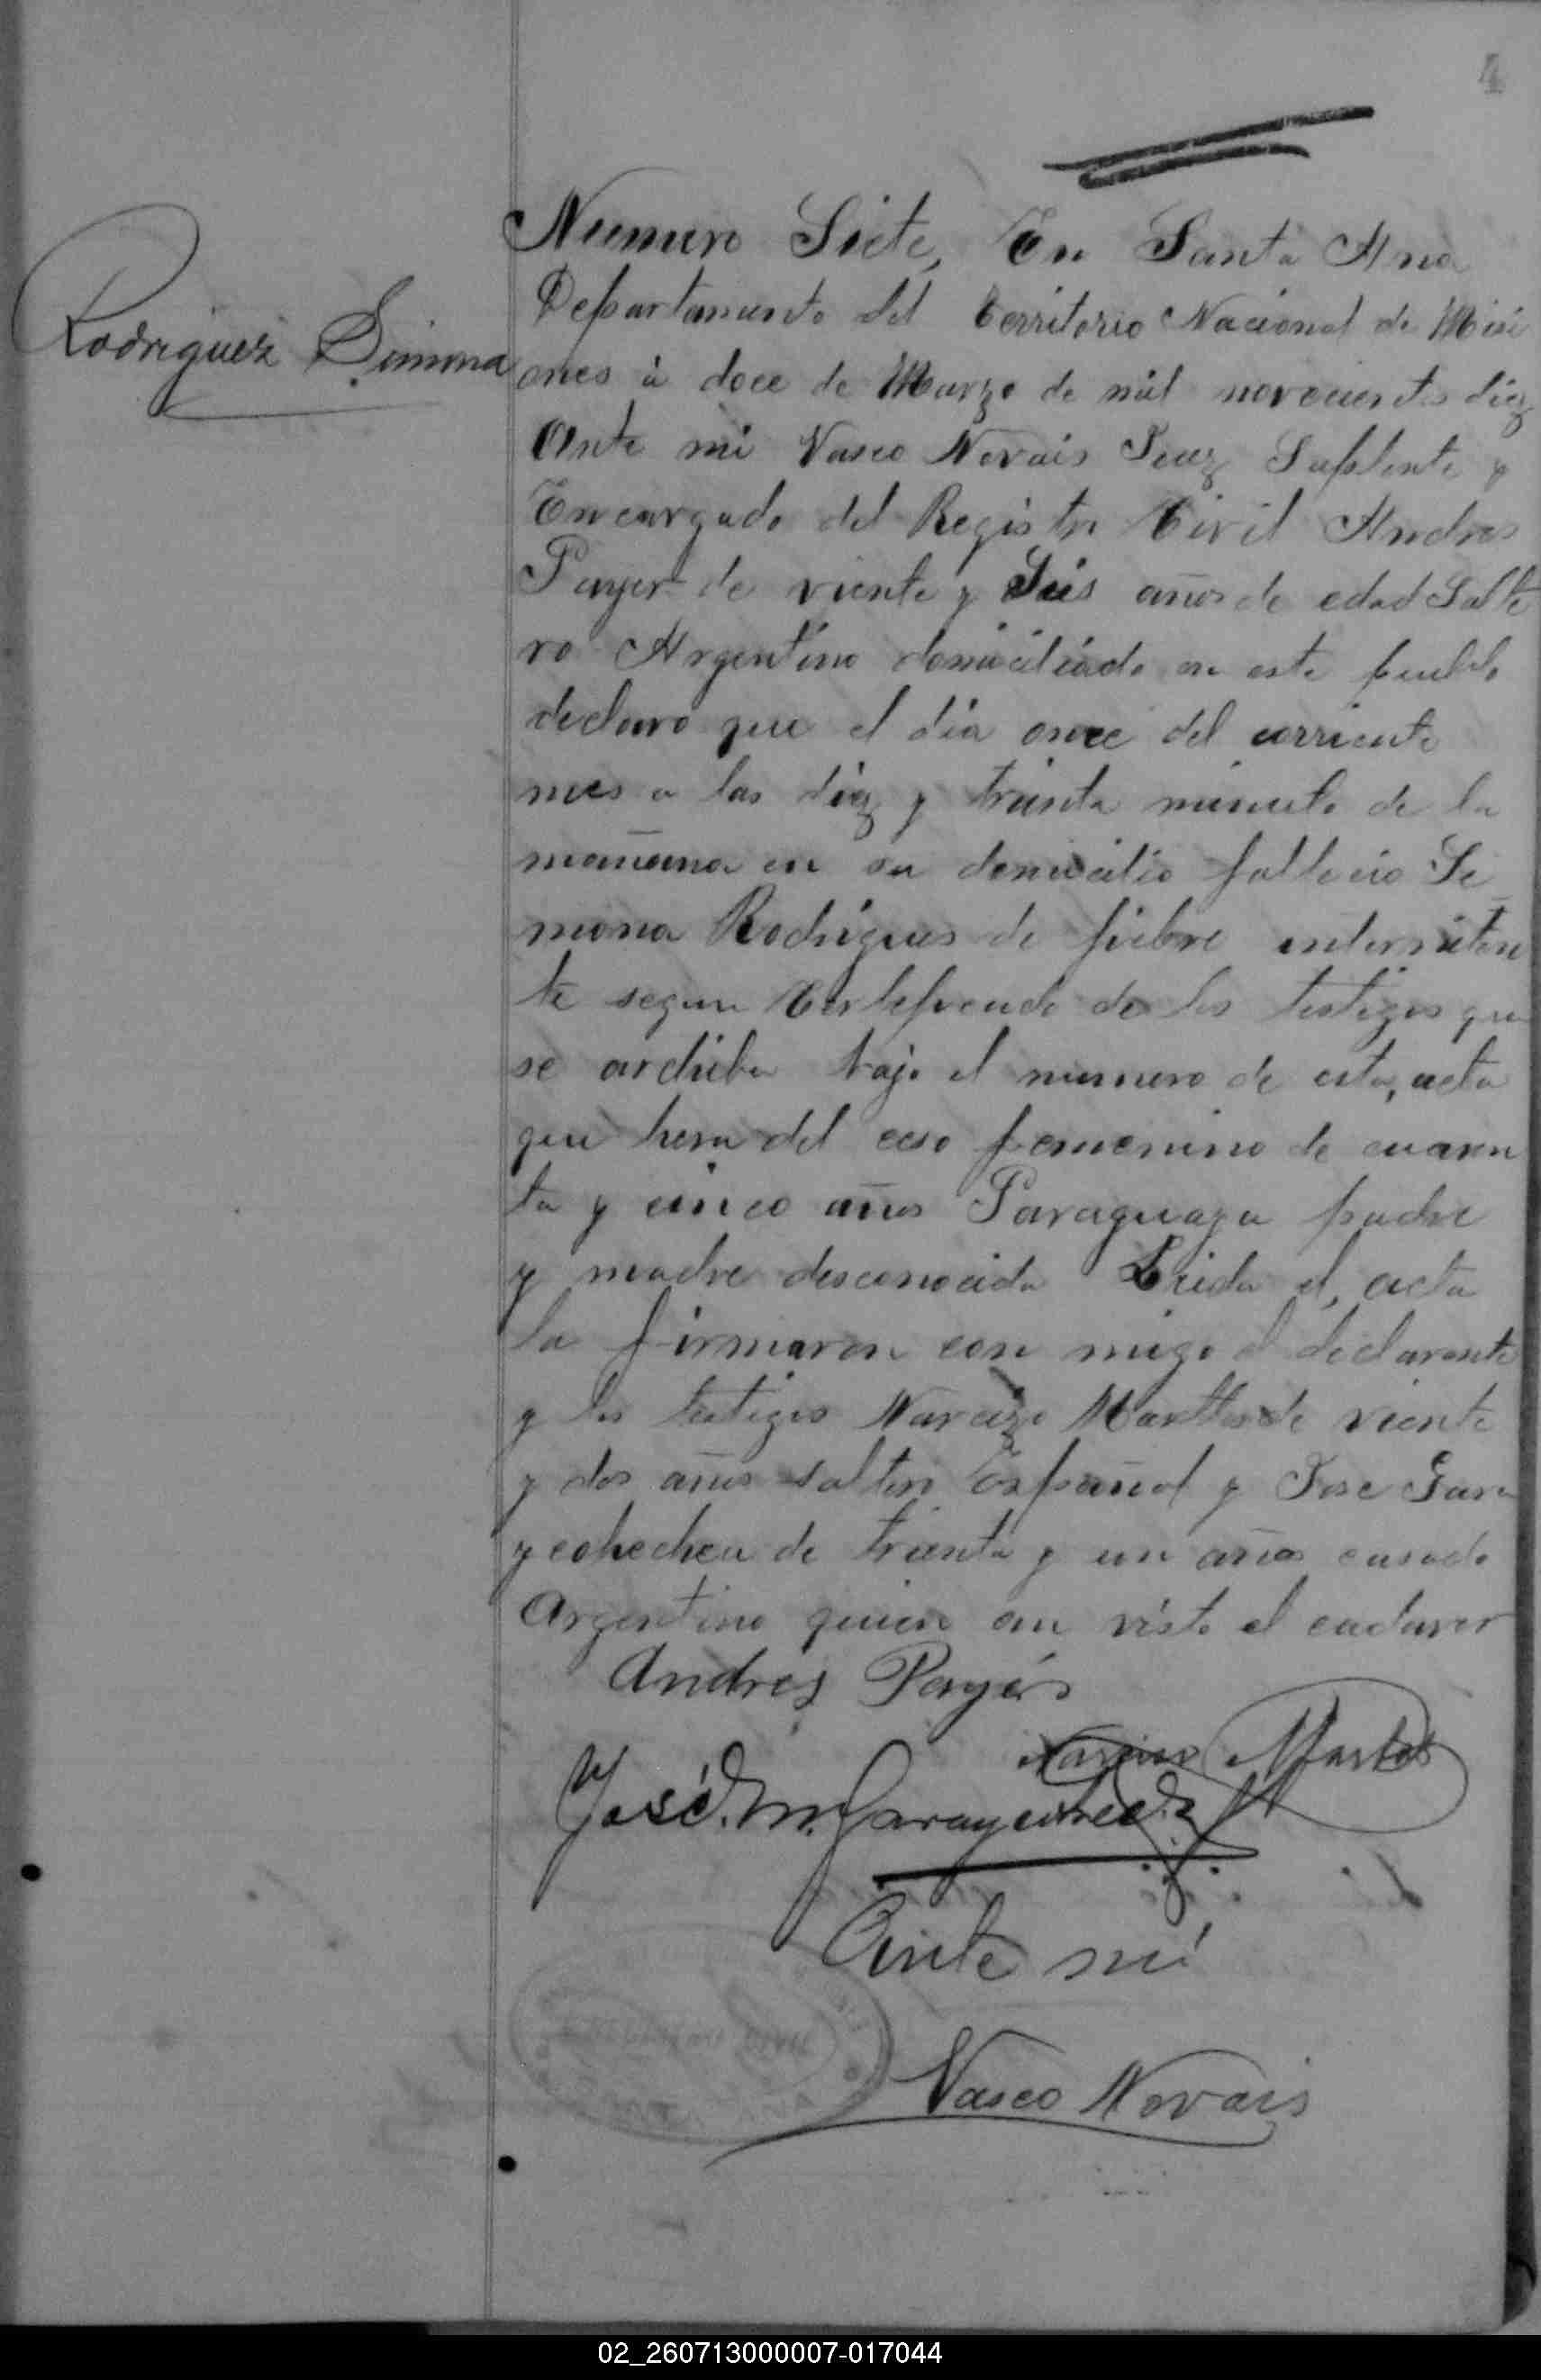 4
Rodriguez Simona
Numero Siete, En Santa Ana
Departamento del Territorio Nacional de Misi
ones à doce de Marzo de mil novecientos diez
Ante mi Vasco Novais Juez Suplente y
Encargado del Registro Civil Andres
Payer de viente y Seis años de edad Solte
ro Argentino domiciliado en este pueblo
declaro que el dia once del corriente
mes a las diez y trienta minuto de la
mañana en su domicilio fallecio Si
mona Rodrigues de fiebre intermiten
te segun de los testigos que
se archiba bajo el numero de esta, acta
que hera del ceso femenino de cuaren
ta y cinco años Paraguaya padre
y madre desconocida Leida el, acta
la firmaron con migo el declarante
y los testigos Narcizo Martos de viente
y dos años soltero Español y Jose Gara
ycohechea de trienta y un años casado
Argentino quien an visto el cadaver
Andres Payér
Narciso Martos
José M. Garaycohechea
Ante mi
Vasco Novais
02_260713000007-017044